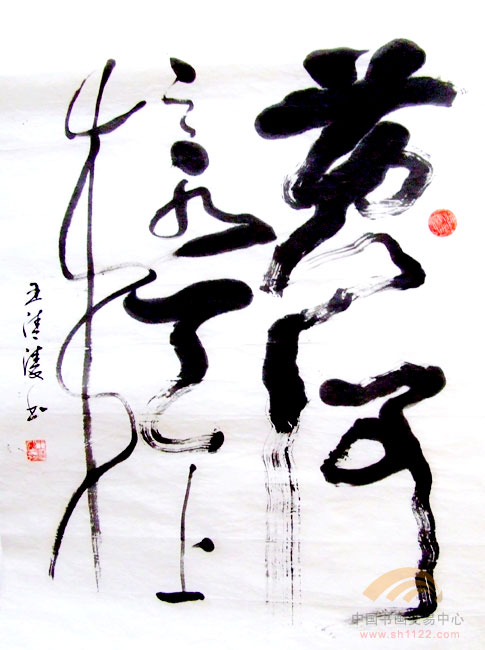 黄河
之水天上
来
王清凌书
中国书画交易中心
www.sh1122.com